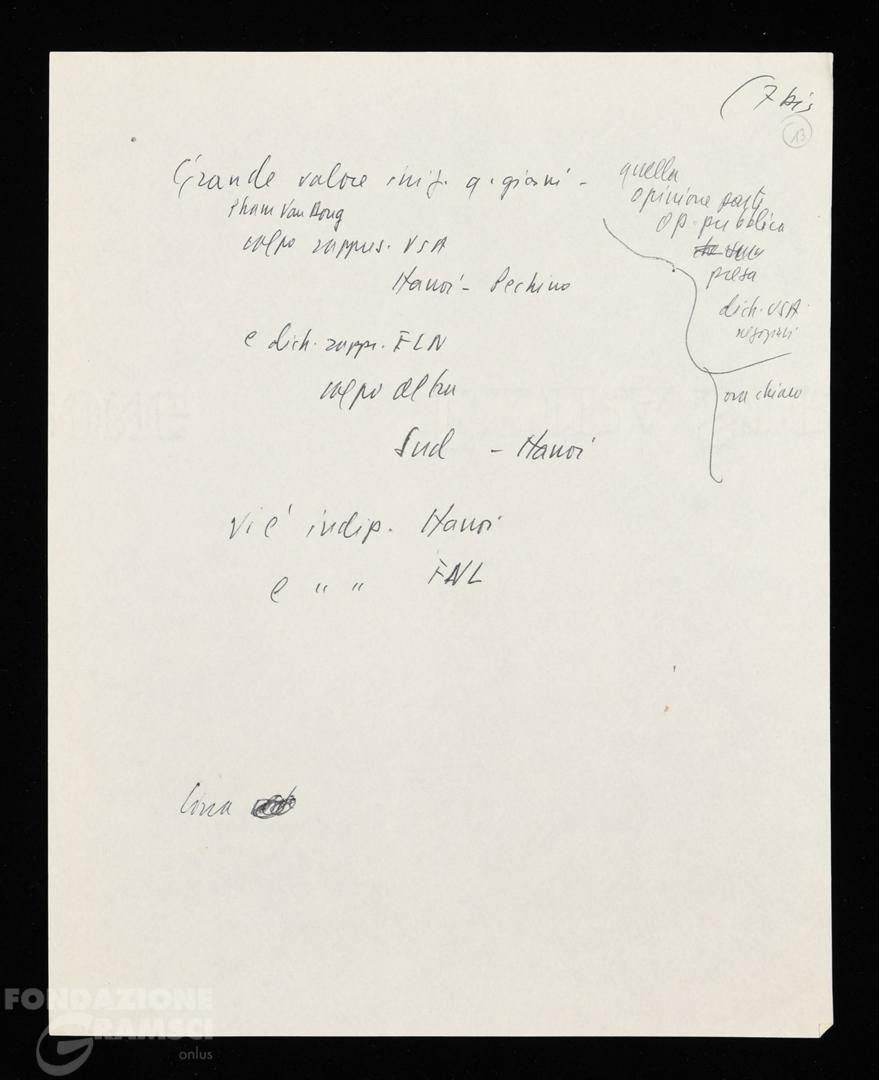 (7 bis
13
Grande valore iniz. q. giorni -
Pham Van Dong
colpo rappres. USA
Hanoi - Pechino
e dich. rappr. FLN
colpo altra
Sud - Hanoi
Vi è indip. Hanoi
e " " FNL
Cina
quella
opinione parte
op. pubblica
presa
dich. USA
negoziati
ora chiaro
FONDAZIONE
GRAMSCI
onlus